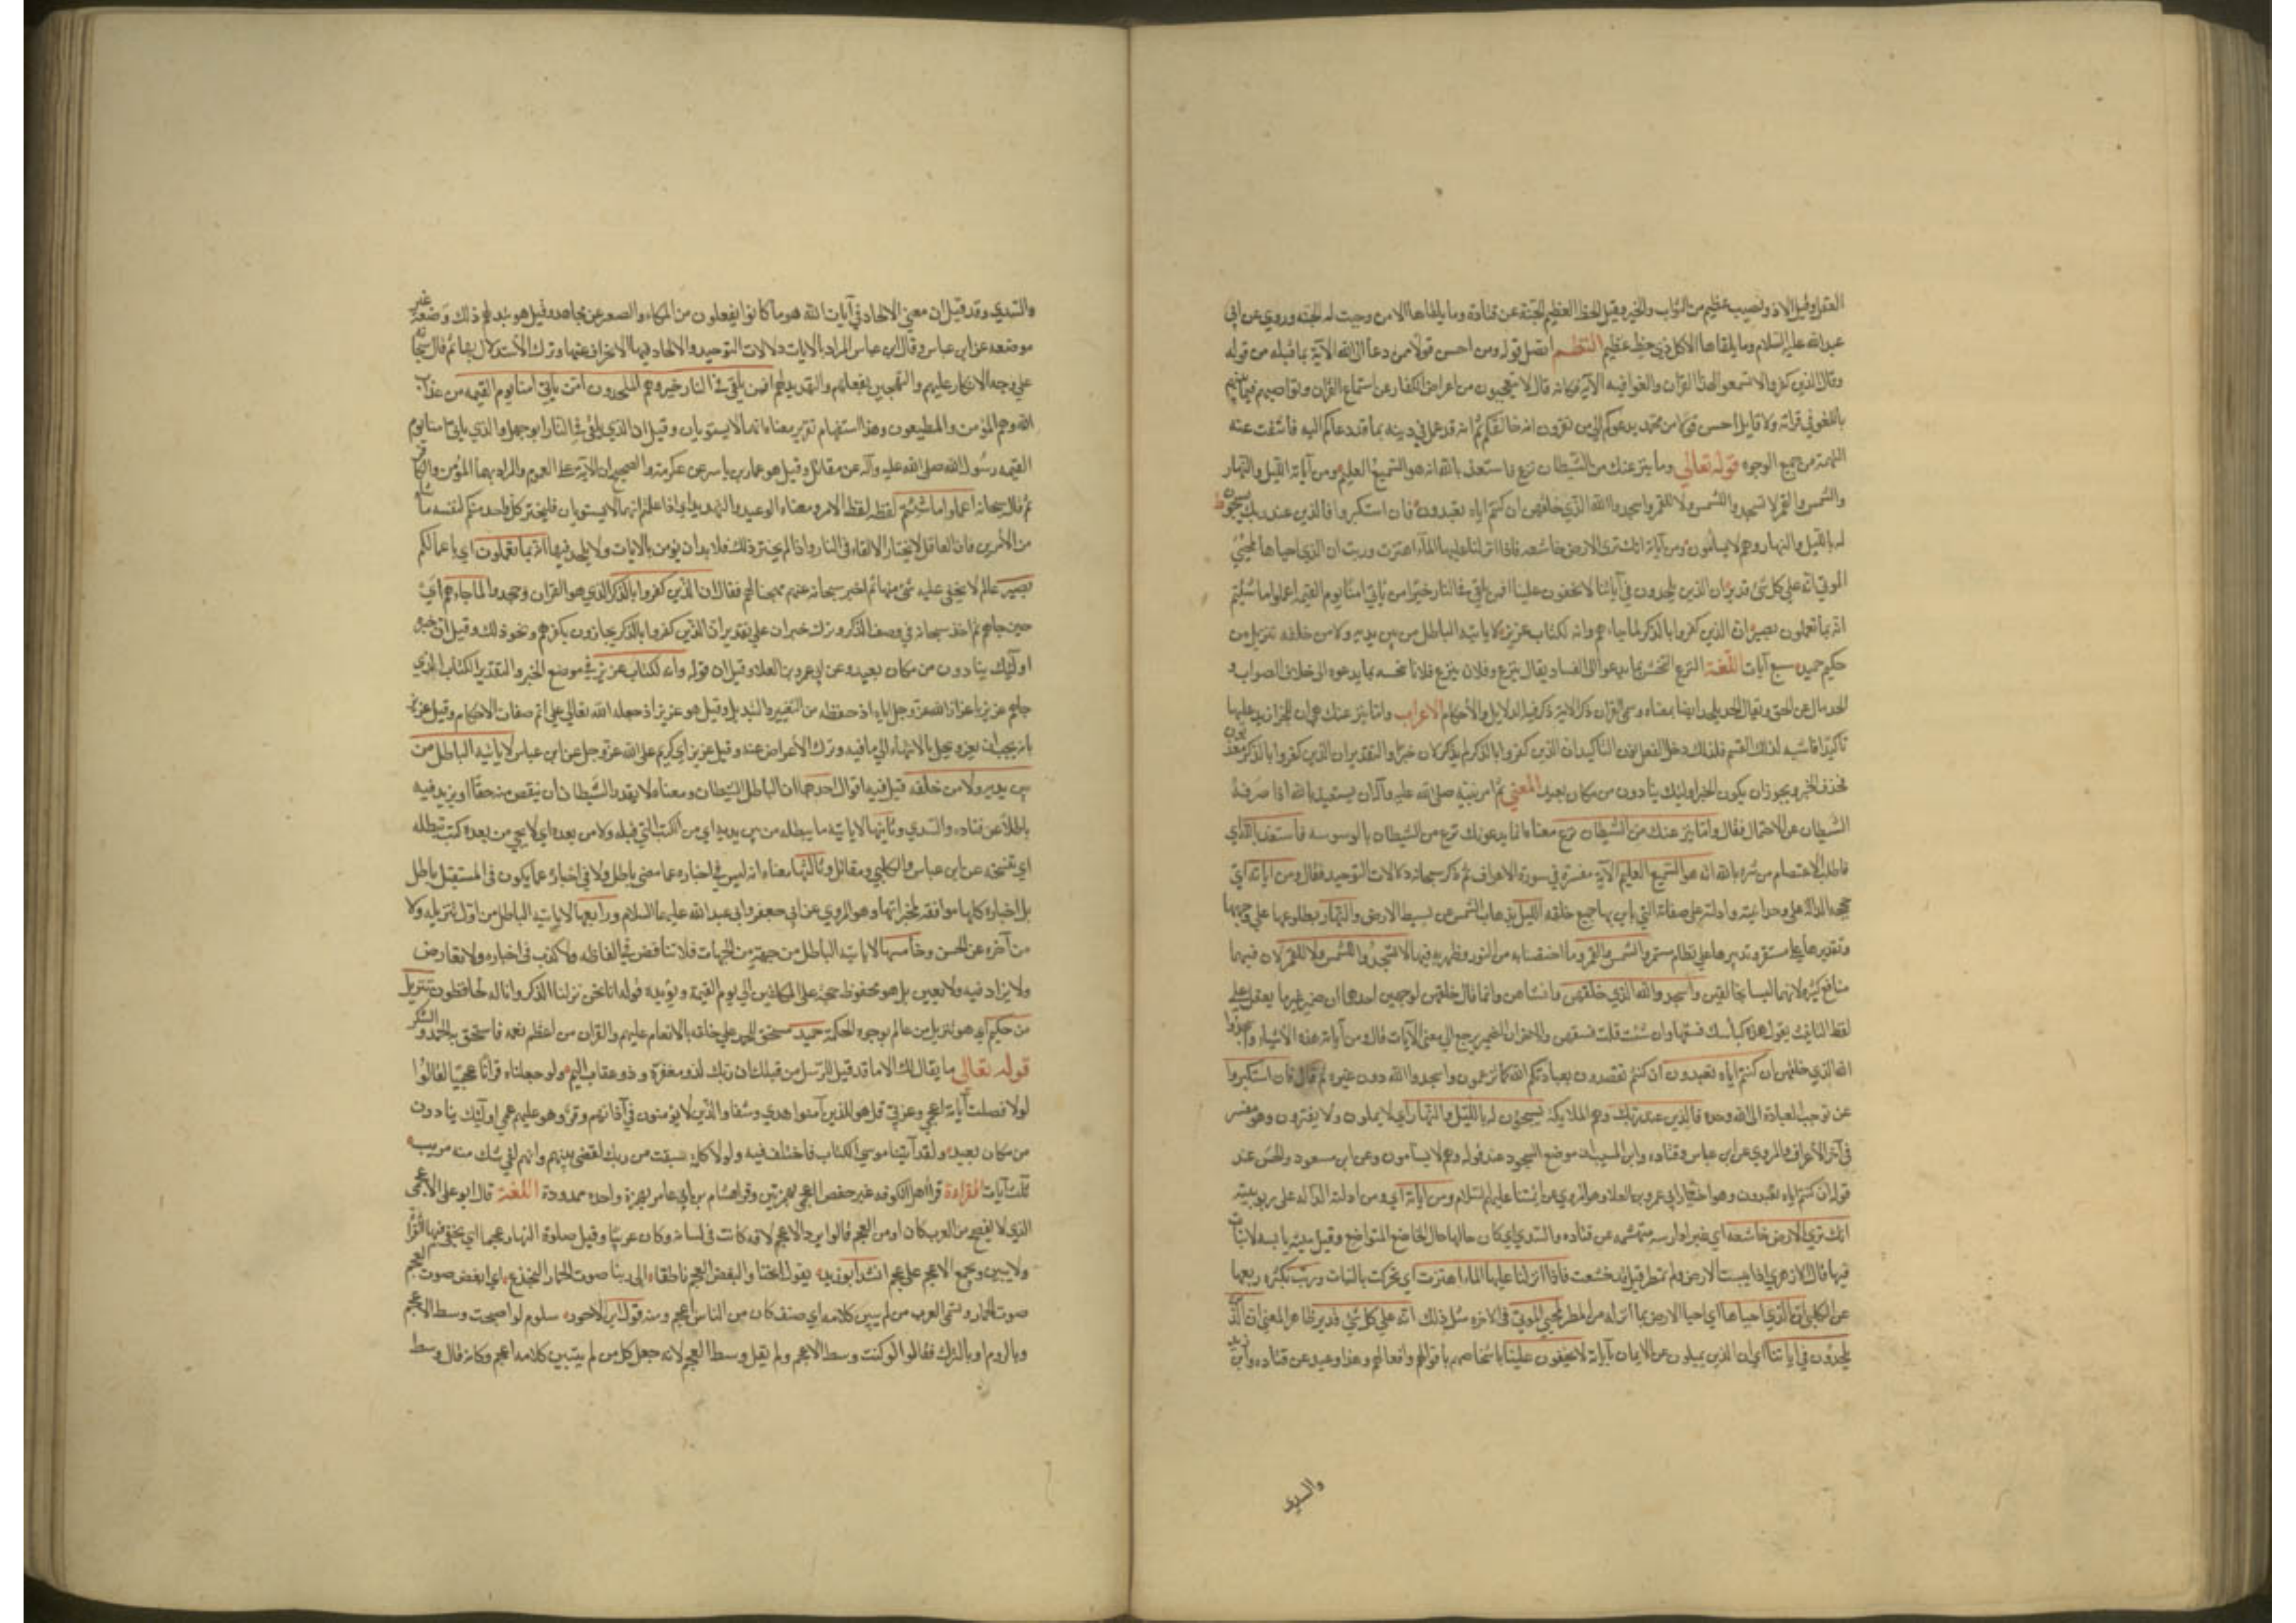 العقل وقيل الا ذو نصيب عظيم من الثواب والخير وقيل الحظ العظيم الجنة عن قتادة وما يلقاها الا من وجبت له الجنة وروي عن ابي
عبدالله عليه السلام وما يلقاها الا كل ذي حظ عظيم النظم اتصل قوله ومن احسن قولا ممن دعا الى الله الآية بما قبله من قوله
وقال الذين كفروا لا تسمعوا لهذا القرآن والغوا فيه الآية فكانه قال لا تتعجبون من اعراض الكفار عن استماع القرآن وتواصيهم فيما بينهم
باللغو في قراته ولا قايل أحسن قولا من محمد يدعوكم الى من تقرون انه خالقكم ثم انه قد عمل في دينه بما قد دعاكم اليه فانتفت عنه
التهمة من جميع الوجوه قوله تعالى وما ينزغنك من الشيطان نزغ فاستعذ بالله انه هو السميع العليم ومن آياته الليل والنهار
والشمس والقمر لا تسجدوا للشمس ولا للقمر واسجدوا الله الذي خلقهن ان كنتم اياه تعبدون فان استكبروا فالذين عند ربك يسبحون
له بالليل والنهار وهم لا يسأمون ومن آياته انك ترى الارض خاشعة فاذا انزلنا عليها الماء اهتزت وربت ان الذي احياها لمحيي
الموتى انه على كل شئ قدير ان الذين يلحدون في آياتنا لا يخفون علينا افمن يلقى في النار خير امن يأتي امنا يوم القيمه اعملوا ما شئتم
انه بما تعملون بصير ان الذين كفروا بالذكر لما جاءهم وانه لكتاب عزيز لا ياتيه الباطل من بين يديه ولا من خلفه تنزيل من
حكيم حميد سبع آيات اللغة النزغ النخس بما يدعوا الى الفساد يقال ينزغ وفلان ينزغ فلانا نخسه بما يدعوه الى خلاف الصواب و
الحد مال عن الحق ويقال لحد يلحد ايضا بمعناه وسمى القرآن ذكرا لانه ذكر فيه الدلايل والأحكام الاعراب واما ينزغنك هي ان للجزا زيد عليها
تأكيدا فاشبه لذلك القسم فلذلك دخل الفعل نون التاكيد ان الذين كفروا بالذكر لم يذكر لان خبرا والتقدير ان الذين كفروا بالذكر معذبون
فحذف الخبر ويجوز ان يكون الخبر اوليك ينادون من مكان بعيد المعني ثم امر نبيه صلى الله عليه وآله ان يستعيذ بالله اذا صرفه
الشيطان عن الاحتمال فقال واما ينزغنك من الشيطان نزغ معناه فاما يدعونك نزغ من الشيطان بالوسوسه فاستعذ بالله اي
فاطلب الاعتصام من شره بالله انه هو السميع العليم الآية مفسرة في سورة الاعراف ثم ذكر سبحانه دلالات التوحيد فقال ومن آياته اي
حججه الدالة على وحدانيته وادلته على صفاته التي باين بها جميع خلقه الليل بذهاب الشمس عن بسيط الارض والنهار بطلوعها على وجهها
وتقديرهما على مستقر وتدبيرهما على نظام مستمر والشمس والقمر وما اختصا به من النور وظهر به فيهما لا تسجدوا للشمس ولا للقمر لان فيهما
منافع كثيرة لانهما ليسا بخالقين واسجدوا الله الذي خلقهن وانشاهن وانما قال خلقهن لوجهين احدهما ان ضمير غير ما يعقل على
لفظ التانيث يقول هذه كباسك فسقتها وان شئت قلت فسقهن والآخر ان الضمير يرجع الى معنى الآيات فقال ومن آياته هذه الاشياء واسجدوا
الله الذي خلقهن ان كنتم اياه تعبدون ان كنتم تقصدون بعبادتكم الله كما تزعمون واسجدوا الله دون غيره ثم قال فان استكبروا
عن توجيه العبادة الى الله وحده فالذين عند ربك وهم الملايكة يسبحون له بالليل والنهار اي لا يملون ولا يفترون وهو مفسر
في آخر الأعراف والمروي عن ابن عباس وقتاده وابن المسيب ان موضع السجود عند قوله وهم لا يسامون وعن ابن مسعود والحسن عند
قوله ان كنتم اياه تعبدون وهو اختيار ابي عمرو بن العلاء وهو المروي عن ائمتنا عليهم السلام ومن آياته اي ومن ادلته الدالة على ربوبيته
انك ترى الارض خاشعه اي غبرا دارسه متهشمه عن قتاده والسدي اي كان حالها حال الخاضع المتواضع وقيل ميته يابسه لا نبات
فيها قال الازهري اذا يبست الارض ولم تمطر قيل قد خشعت فاذا انزلنا عليها الماء اهتزت اي تحركت بالنبات وربت بكثره ريعها
عن الكلبي ان الذي احياها اي احيا الارض بما انزله من المطر لمحيي الموتى في الاخره مثل ذلك انه على كل شئ قدير ظاهر المعنى ان الذين
يلحدون في آياتنا اي ان الذين يميلون عن الايمان بآياته لا يخفون علينا باشخاصهم باقوالهم وافعالهم وهذا وعيد عن قتاده وابن زيد
والسدي
والسدي وقد قيل ان معنى الالحاد في آيات الله هو ما كانوا يفعلون من المكاء والصفير عن مجاهد وقيل هو تبديلهم ذلك وضعه غير
موضعه عن ابن عباس وقال ابن عباس المراد بالآيات دلالات التوحيد والالحاد فيها الانحراف عنها وترك الأستدلال بها ثم قال سبحانه
على وجه الانكار عليهم والتهجين بفعلهم والتهديد لهم افمن يلقى في النار خير وهم الملحدون امن يأتي امنا يوم القيمه من عذاب
الله وهم المؤمن والمطيعون وهذا استفهام تقرير معناه انهما لا يستويان وقيل ان الذي يلقى في النار ابو جهل والذي يأتي امنا يوم
القيمه رسول الله صلى الله عليه وآله عن مقاتل وقيل هو عمار بن ياسر عن عكرمة والصحيح ان الآية على العموم والمراد بهما المؤمن والكافر
ثم قال سبحانه اعملوا ما شئتم لفظه لفظ الامر ومعناه الوعيد والتهديد اي اذا علمتم انهما لا يستويان فليختر كل واحد منكم لنفسه ما شاء
من الأمرين فان العاقل لا يختار الالقاء في النار واذا لم يختر ذلك فلا بد ان يؤمن بالآيات ولا يلحد فيها انه بما تعملون اي باعمالكم
بصير عالم لا يخفى عليه شئ منها ثم اخبر سبحانه عنهم مهجنا لهم فقال ان الذين كفروا بالذكر الذي هو القران وجحدوا لما جاءهم اي
حين جاءهم ثم اخذ سبحانه في وصف الذكر وترك خبر ان على تقدير ان الذين كفروا بالذكر يجازون بكفرهم ونحو ذلك وقيل ان خبره
اوليك ينادون من مكان بعيد وعن ابي عمرو بن العلا وقيل ان قوله وانه لكتاب عزيز في موضع الخبر والتقدير الكتاب الذي
جاءهم عزيز باعزاز الله عز وجل اياه اذ حفظه من التغيير والتبديل وقيل هو عزيز اذ جعله الله تعالى على اتم صفات الاحكام وقيل عزيز
بانه يجب ان يعز ويجل بالانتهاء الى ما فيه وترك الأعراض عنه وقيل عزيز اي كريم على الله عز وجل عن ابن عباس لا ياتيه الباطل من
بين يديه ولا من خلفه قيل فيه اقوال احدها ان الباطل الشيطان ومعناه لا يقدر الشيطان ان ينقص منه حقا او يزيد فيه
باطلا عن قتاده والسدي وثانيها لا ياتيه ما يبطله من بين يديه اي من الكتب التي قبله ولا من بعده اي لا يجي من بعده كتب تبطله
اي تنسخه عن ابن عباس والكلبي ومقاتل وثالثها معناه انه ليس في اخباره عما مضى باطل ولا في اخباره عما يكون في المستقبل باطل
بل اخباره كلها موافقة لمخبراتها وهو المروي عن ابي جعفر وابي عبد الله عليهما السلام ورابعها لا ياتيه الباطل من اول تنزيله ولا
من آخره عن الحسن وخامسها لا ياتيه الباطل من جهة من الجهات فلا تناقض في الفاظه ولا كذب في اخباره ولا تعارض
ولا يزاد فيه ولا يغير بل هو محفوظ حجة على المكلفين الى يوم القيمة ويؤيده قوله انا نحن نزلنا الذكر وانا له لحافظون تنزيل
من حكيم اي هو تنزيل من عالم بوجوه الحكمة حميد مستحق للحمد على خلقه بالانعام عليهم والقران من اعظم نعمه فاستحق به الحمد والشكر
قوله تعالى ما يقال لك الا ما قد قيل للرسل من قبلك ان ربك لذو مغفرة وذو عقاب اليم ولو جعلناه قرآنا عجميا لقالوا
لولا فصلت آياته اعجمي وعربي قل هو للذين آمنوا هدى وشفا والذين لا يؤمنون في آذانهم وقر وهو عليهم عمى اوليك ينادون
من مكان بعيد ولقد آتينا موسى الكتاب فاختلف فيه ولولا كلمة سبقت من ربك لقضي بينهم وانهم لفي شك منه مريب
ثلث آيات القراءة قرأ اهل الكوفه غير حفص اعجمي بهمزتين وقرا هشام بن عامر بهمزة واحده ممدودة اللغة قال ابو علي الاعجمي
الذي لا يفصح من العرب كان او من العجم قالوا زياد الاعجم لانه كانت في لسانه وكان عربيا وقيل صلوة النهار عجما اي يخفى فيها القراءة
ولا يبين ويجمع الاعجم على عجم انشد ابو زيد يقول الخنا وابغض العجم ناطقا الى ربنا صوت الحمار اليجدع اي ابغض صوت العجم
صوت الحمار وتسمى العرب من لم يبين كلامه اي صنف كان من الناس اعجم ومنه قول ابن الاحزر سلوم لو اصبحت وسط الاعجم
وبالروم او بالترك فقالوا لو كنت وسط الاعجم ولم يقل وسط العجم لانه جعل كل من لم يتبين كلامه اعجم وكانه قال وسط